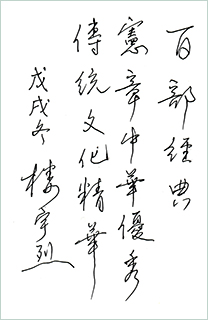 百部經典
憲章中華優秀
傳統文化精華
戊戌冬 樓宇烈